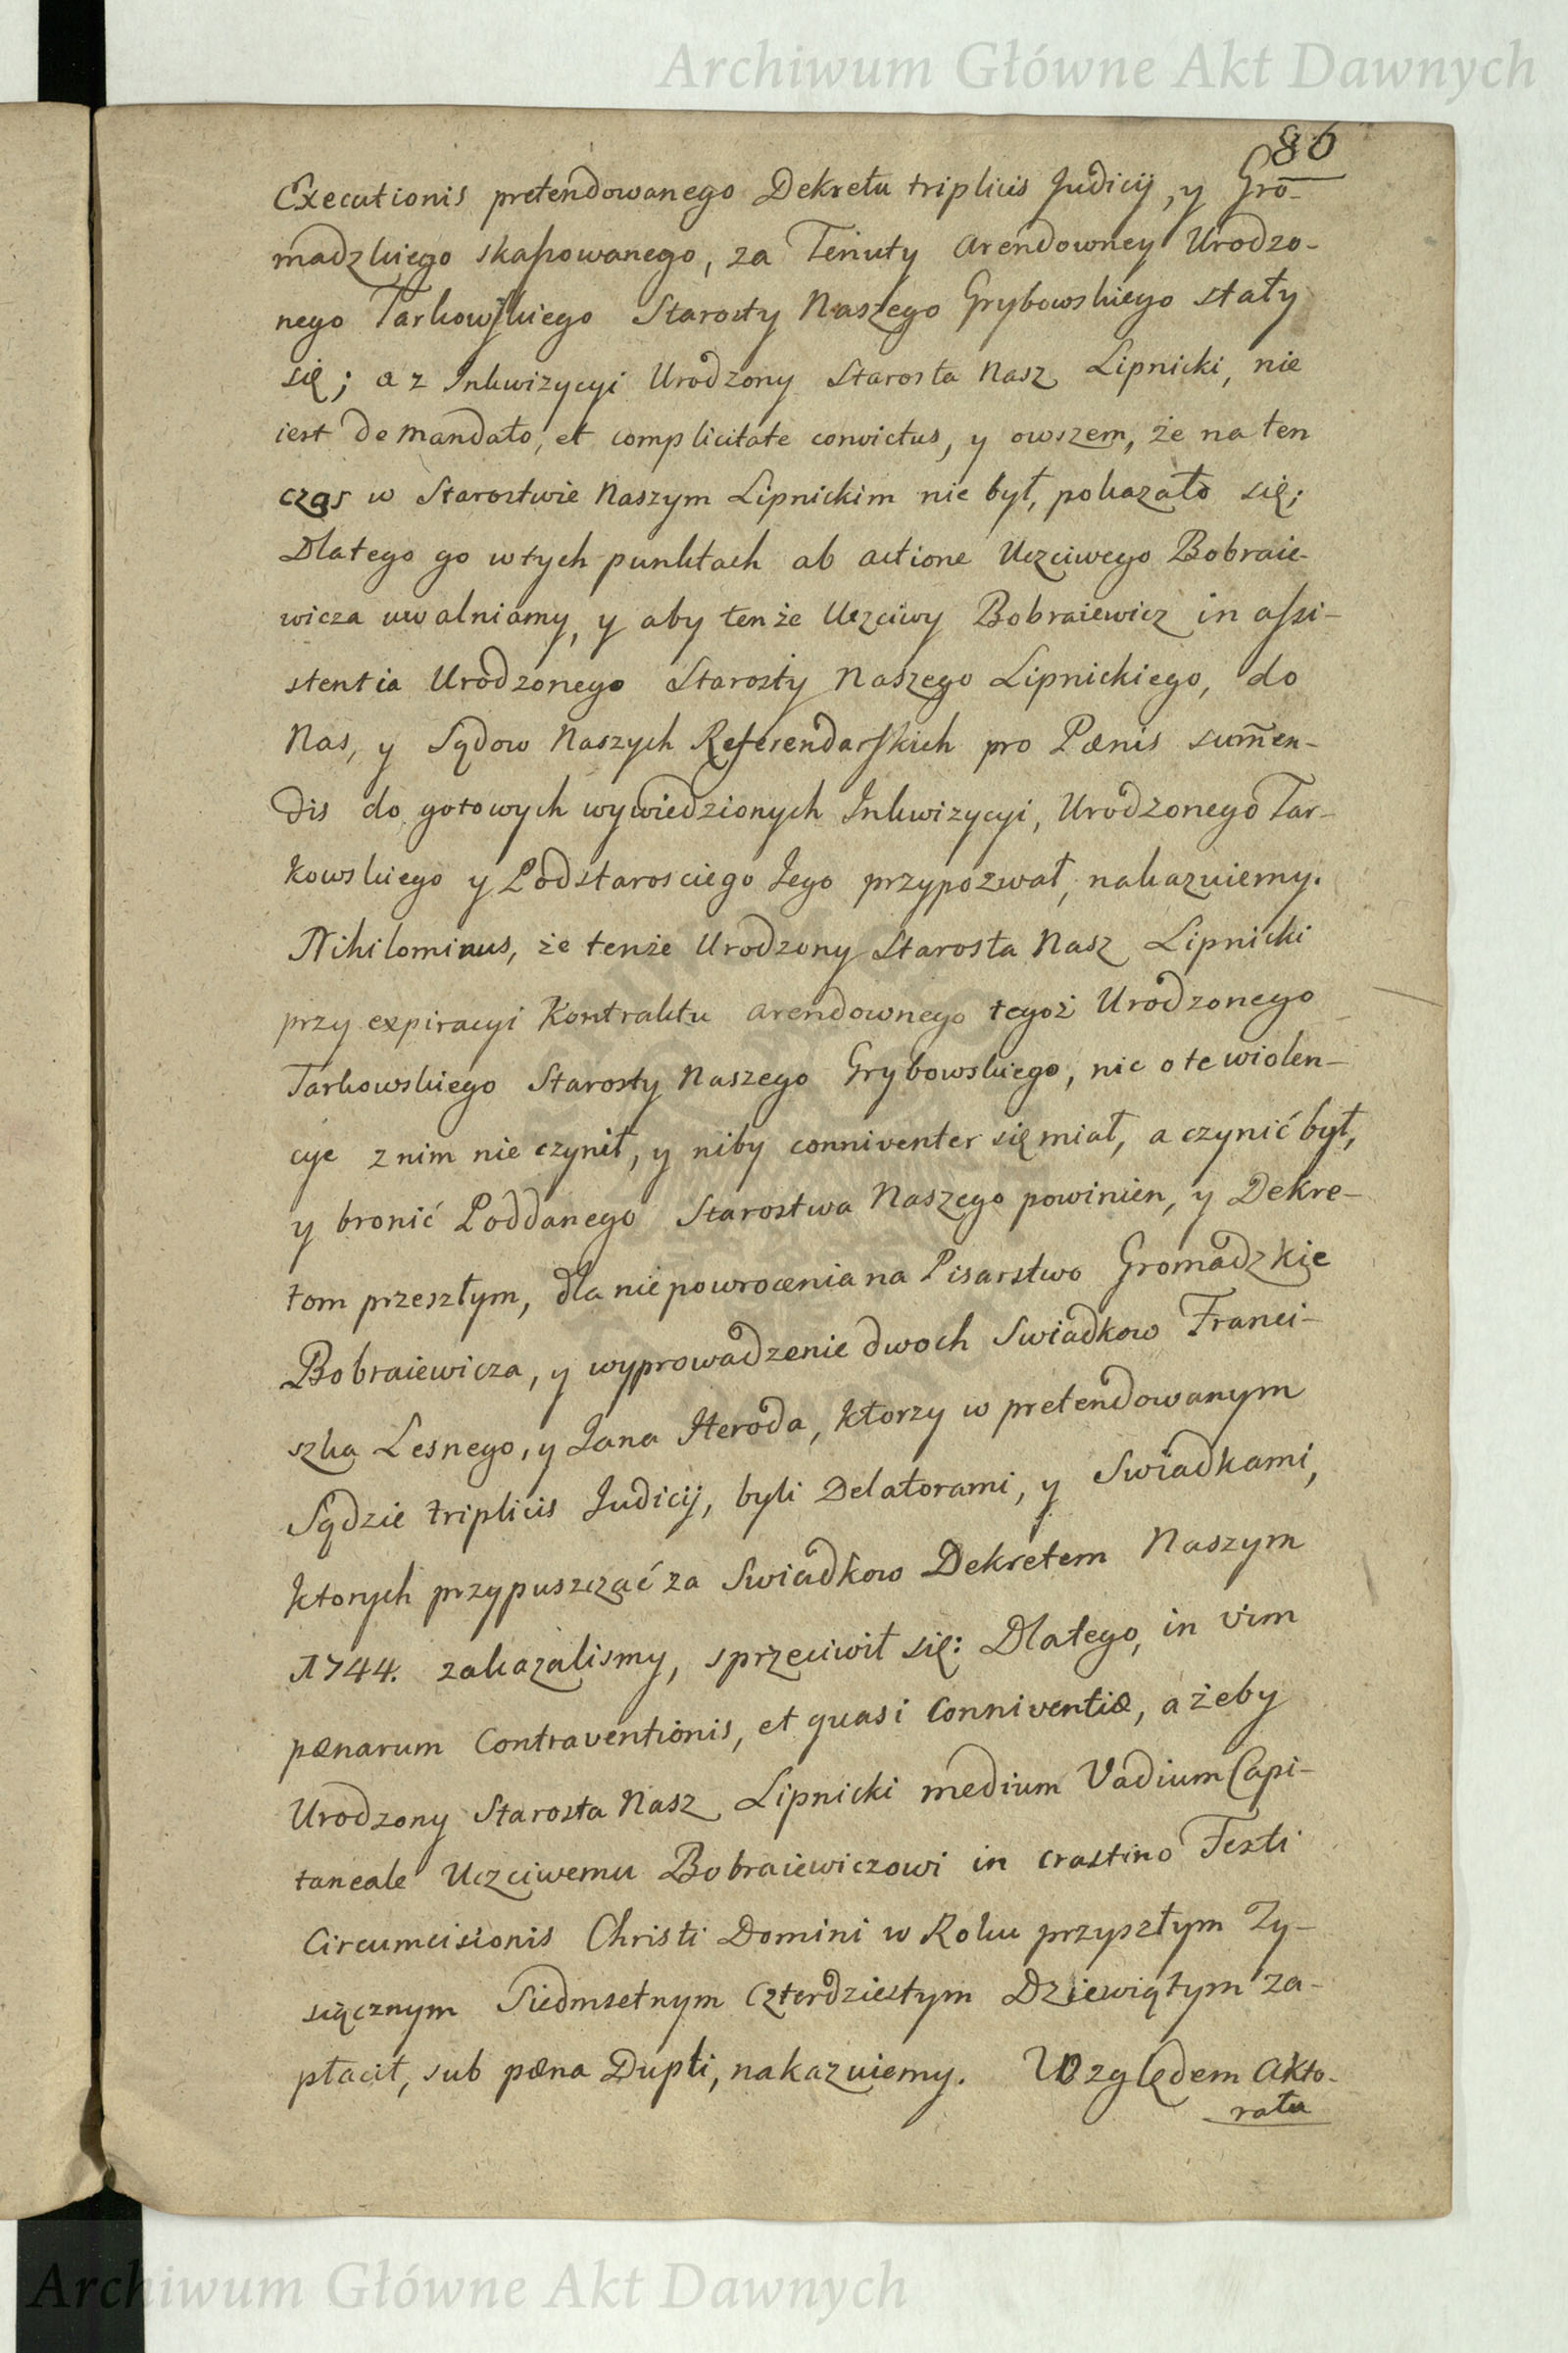 Archiwum Główne Akt Dawnych
86
Executionis pretendowanego Dekretu triplicis Judicij, y Gro-
madzkiego skassowanego, za Tenuty Arendowney Urodzo-
nego Tarkowskiego Starosty Naszego Grybowskiego stały
się; a z Inkwizycyi Urodzony Starosta Nasz Lipnicki, nie
iest de mandato, et complicitate convictus, y owszem, że na ten
czas w Starostwie Naszym Lipnickim nie był, pokazało się;
Dlatego go w tych punktach ab actione Uczciwego Bobraie-
wicza uwalniamy, y aby tenże Uczciwy Bobraiewicz in assi-
stentia Urodzonego Starosty Naszego Lipnickiego, do
Nas, y Sądow Naszych Referendarskich pro Pænis sum̄en-
dis do gotowych wywiedzionych Inkwizycyi, Urodzonego Tar-
kowskiego y Podstarosciego Jego przypozwał, nakazuiemy.
Nihilominus, że tenże Urodzony Starosta Nasz Lipnicki
przy expiracyi Kontraktu arendownego tegoż Urodzonego
Tarkowskiego Starosty Naszego Grybowskiego, nic o te wiolen-
cye z nim nie czynił, y niby conniventer się miał, a czynić był,
y bronić Poddanego Starostwa Naszego powinien, y Dekre-
tom przeszłym, dla nie powrocenia na Pisarstwo Gromadzkie
Bobraiewicza, y wyprowadzenie dwoch Swiadkow Franci-
szka Lesnego, y Jana Heroda, ktorzy w pretendowanym
Sądzie triplicis Judicij, byli Delatorami, y Swiadkami,
ktorych przypuszczać za Swiadkow Dekretem Naszym
1744. zakazalismy, sprzeciwił się: Dlatego, in vim
pænarum Contraventionis, et quasi Conniventiæ, ażeby
Urodzony Starosta Nasz Lipnicki medium Vadium Capi-
taneale Uczciwemu Bobraiewiczowi in crastino Festi
Circumcisionis Christi Domini w Roku przyszłym Ty-
siącznym Siedmsetnym Czterdziestym Dziewiątym za-
płacił, sub pæna Dupli, nakazuiemy. Względem Akto-
ratu
Archiwum Główne Akt Dawnych